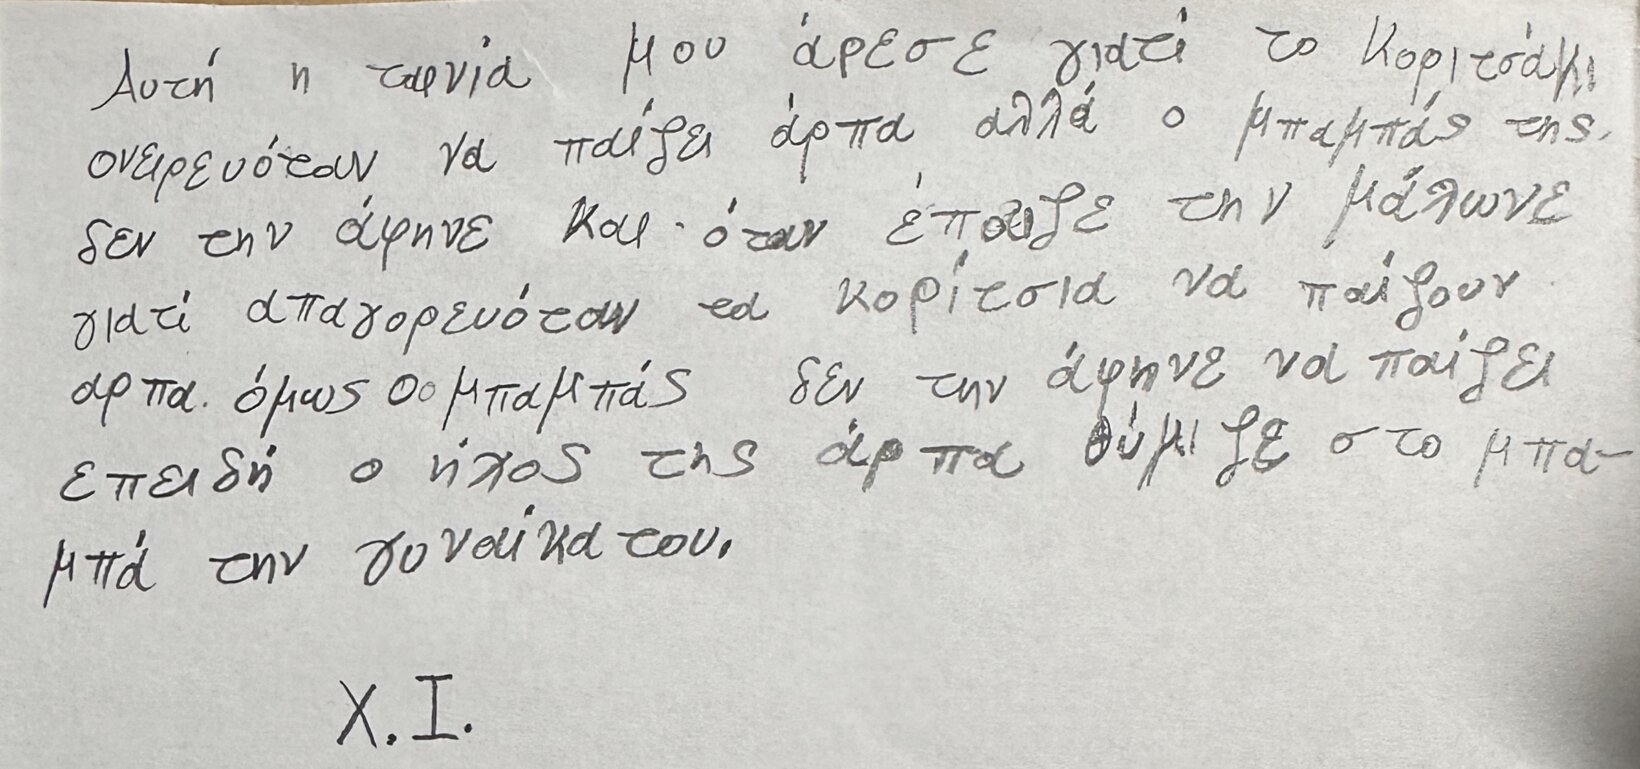 Αυτή η ταινία μου άρεσε γιατί το κοριτσάκι
ονειρευόταν να παίζει άρπα αλλά ο μπαμπάς της.
δεν την άφηνε και όταν έπαιζε την μάλωνε
γιατί απαγορευόταν τα κορίτσια να παίζουν
αρπα. όμως οο μπαμπάς δεν την άφηνε να παίζει
επειδή ο ήχος της άρπα θύμιζε στο μπα-
μπά την γυναίκα του.
Χ.Ι.